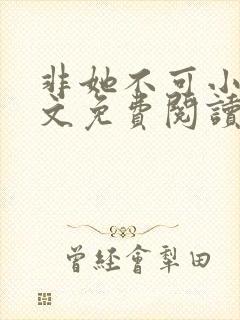 非她不可小
文免費閱讀
曾經會犁田